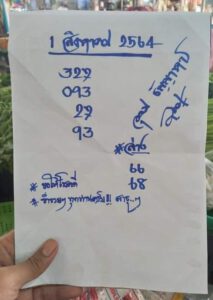 1 สิงหาคม 2564
322
093
22
93
*ล่าง
66
68
* ขอให้โชคดี
* ร่ำรวยๆ ทุกท่านครับ!!! สาธุ...ๆ